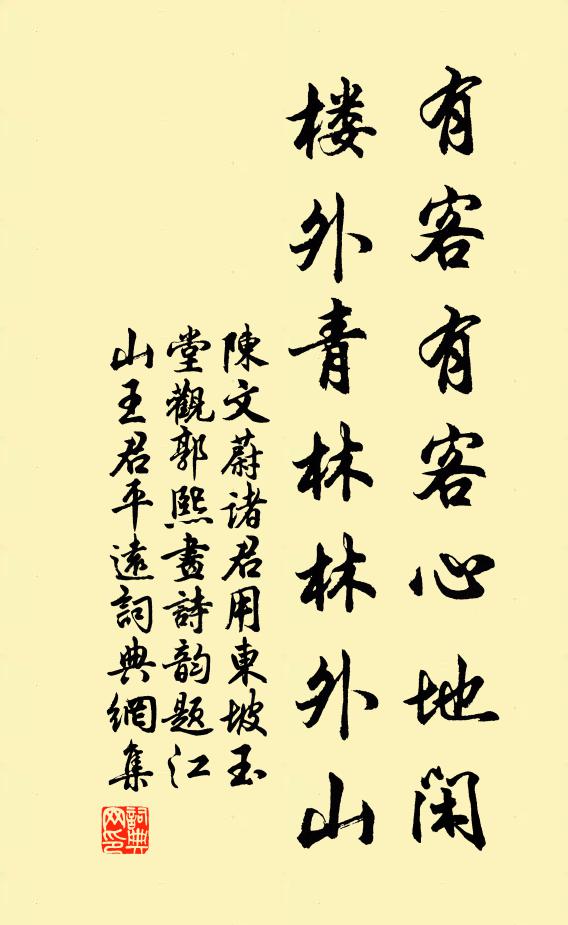 有客有客心地閑
楼外青林林外山
陳文蔚諸君用東坡玉
堂觀郭熙畫詩韵題江
山王君平遠詞典網集
詞典
网印